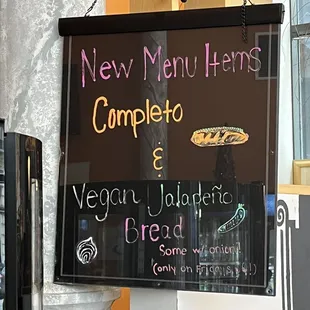 New Menu Items
Completo
&
Vegan Jalapeño
Bread
Some w/ onion!
(only on Fridays